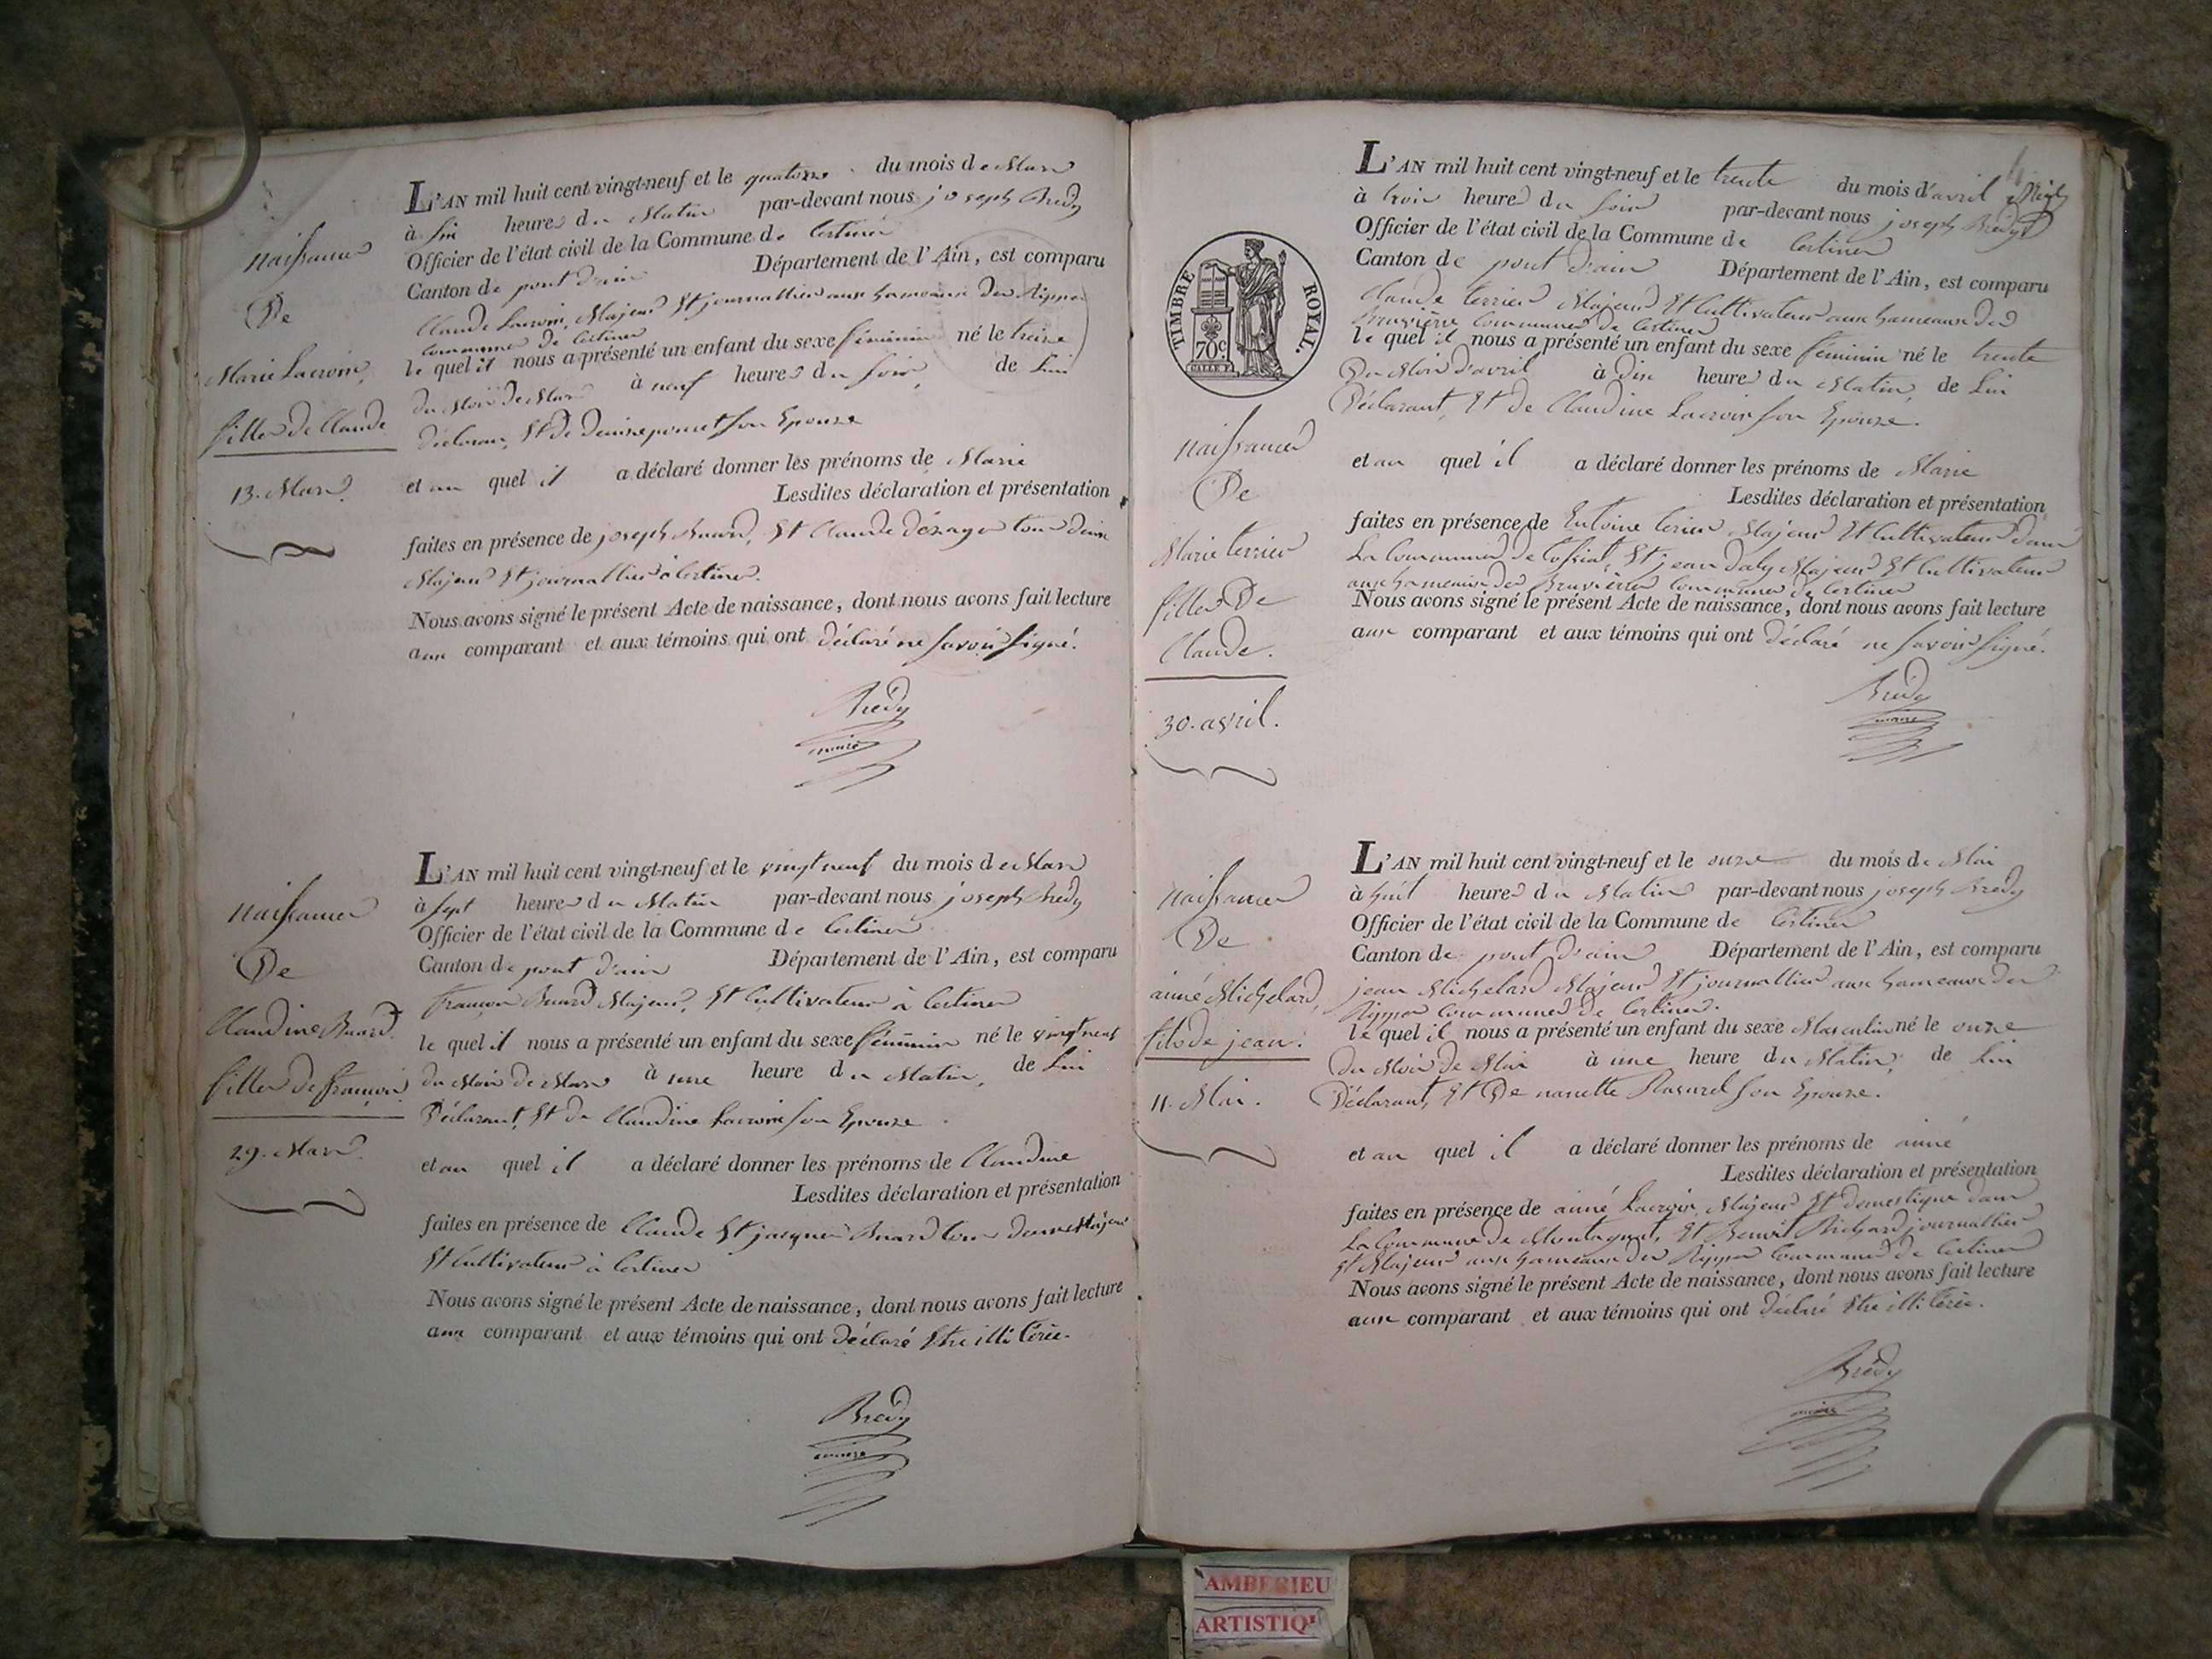 Naissance
De
Marie Lacroix,
fille de Claude
13. Mars.
L'AN mil huit cent vingt-neuf et le quatorze du mois de Mars
à six heures du Matin par-devant nous joseph Bredy
Officier de l'état civil de la Commune de Certines
Canton de pont d'ain Département de l'Ain, est comparu
Claude Lacroix, Majeur Et journallier aux hameaux des Rippes
Commune de Certines
le quel il nous a présenté un enfant du sexe féminin né le treize
du Mois de Mars à neuf heures du soir, de Lui
Déclarant, Et de Denise poncet son Epouse
et au quel il a déclaré donner les prénoms de Marie
Lesdites déclaration et présentation
faites en présence de joseph Buard, Et Claude tous deux
Majeur Et journallier à Certines.
Nous avons signé le présent Acte de naissance, dont nous avons fait lecture
aux comparant et aux témoins qui ont déclaré ne savoir signé.
Bredy
maire
Naissance
De
Claudine Buard.
fille de françois
29. Mars.
L'AN mil huit cent vingt-neuf et le vingt neuf du mois de Mars
à sept heures du Matin par-devant nous joseph Bredy
Officier de l'état civil de la Commune de Certines
Canton de pont d'ain Département de l'Ain, est comparu
françois Buard Majeur, Et Cultivateur à Certines
le quel il nous a présenté un enfant du sexe féminin né le vingt neuf
du Mois de Mars à une heure du Matin, de Lui
Déclarant, Et de Claudine Lacroix son Epouse
et au quel il a déclaré donner les prénoms de Claudine
Lesdites déclaration et présentation
faites en présence de Claude Et jacques Buard tous deux Majeur
Et Cultivateur à Certines
Nous avons signé le présent Acte de naissance, dont nous avons fait lecture
aux comparant et aux témoins qui ont déclaré Etre illitérée.
Bredy
maire
TIMBRE ROYAL.
70c
Naissance
De
Marie terrier
fille De
Claude.
30. avril.
L'AN mil huit cent vingt-neuf et le trente du mois d'avril
à trois heures du soir par-devant nous joseph Bredy
Officier de l'état civil de la Commune de Certines
Canton de pont d'ain Département de l'Ain, est comparu
Claude terrier Majeur Et Cultivateur aux hameaux des
Bruyières Commune de Certines
le quel il nous a présenté un enfant du sexe féminin né le trente
Du Mois d'avril à dix heures du Matin, de Lui
Déclarant, Et de Claudine Lacroix son Epouse.
et au quel il a déclaré donner les prénoms de Marie
Lesdites déclaration et présentation
faites en présence de Entoine terier Majeur Et Cultivateur dans
La Commune de Tossiat, Et jean Majeur Et Cultivateur
aux hameaux des Bruyières Commune de Certines
Nous avons signé le présent Acte de naissance, dont nous avons fait lecture
aux comparant et aux témoins qui ont déclaré ne savoir signé.
Bredy
maire
Naissance
De
aimé Michelard,
fils de jean.
11. Mai.
L'AN mil huit cent vingt-neuf et le onze du mois de Mai
à huit heures du Matin par-devant nous joseph Bredy
Officier de l'état civil de la Commune de Certines
Canton de pont d'ain Département de l'Ain, est comparu
jean Michelard Majeur Et journallier aux hameaux des
Rippes Commune de Certines.
le quel il nous a présenté un enfant du sexe Masculin né le onze
du Mois de Mai à une heure du Matin, de Lui
Déclarant, Et De nanette Rasurel son Epouse.
et au quel il a déclaré donner les prénoms de aimé
Lesdites déclaration et présentation
faites en présence de aimé Lacroix Majeur Et domestique dans
La Commune de Montagnat, Et Benoit Richard journallier
Et Majeur aux hameaux des Rippes Commune de Certines
Nous avons signé le présent Acte de naissance, dont nous avons fait lecture
aux comparant et aux témoins qui ont déclaré Etre illitérée.
Bredy
maire
AMBERIEU
ARTISTIQ